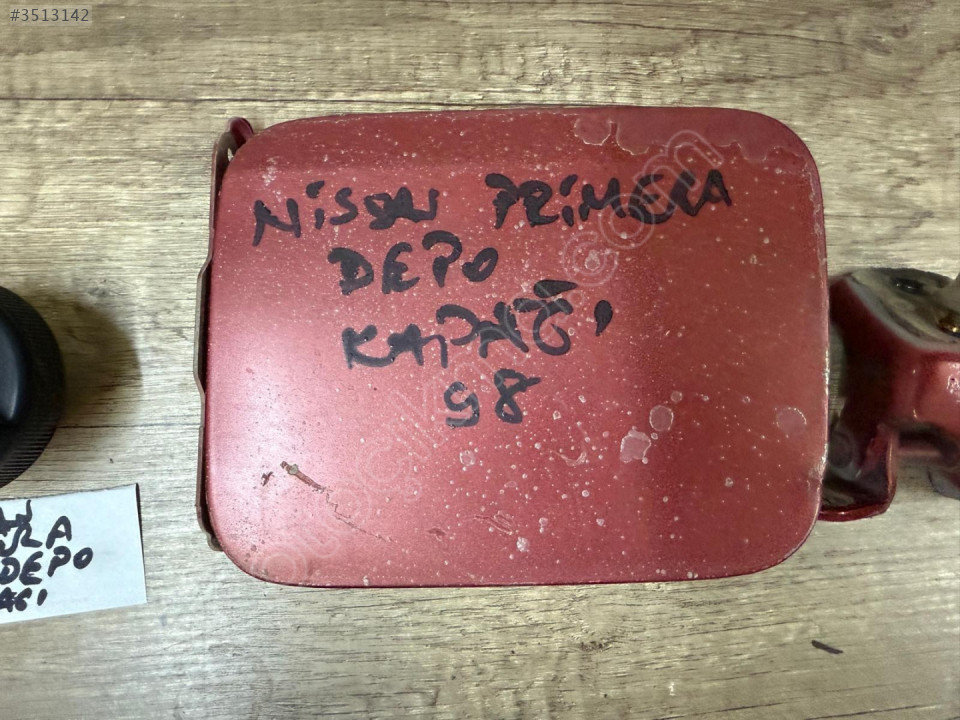 #3513142
NISSAN PRİMERA
DEPO
KAPAĞI
98
DEPO